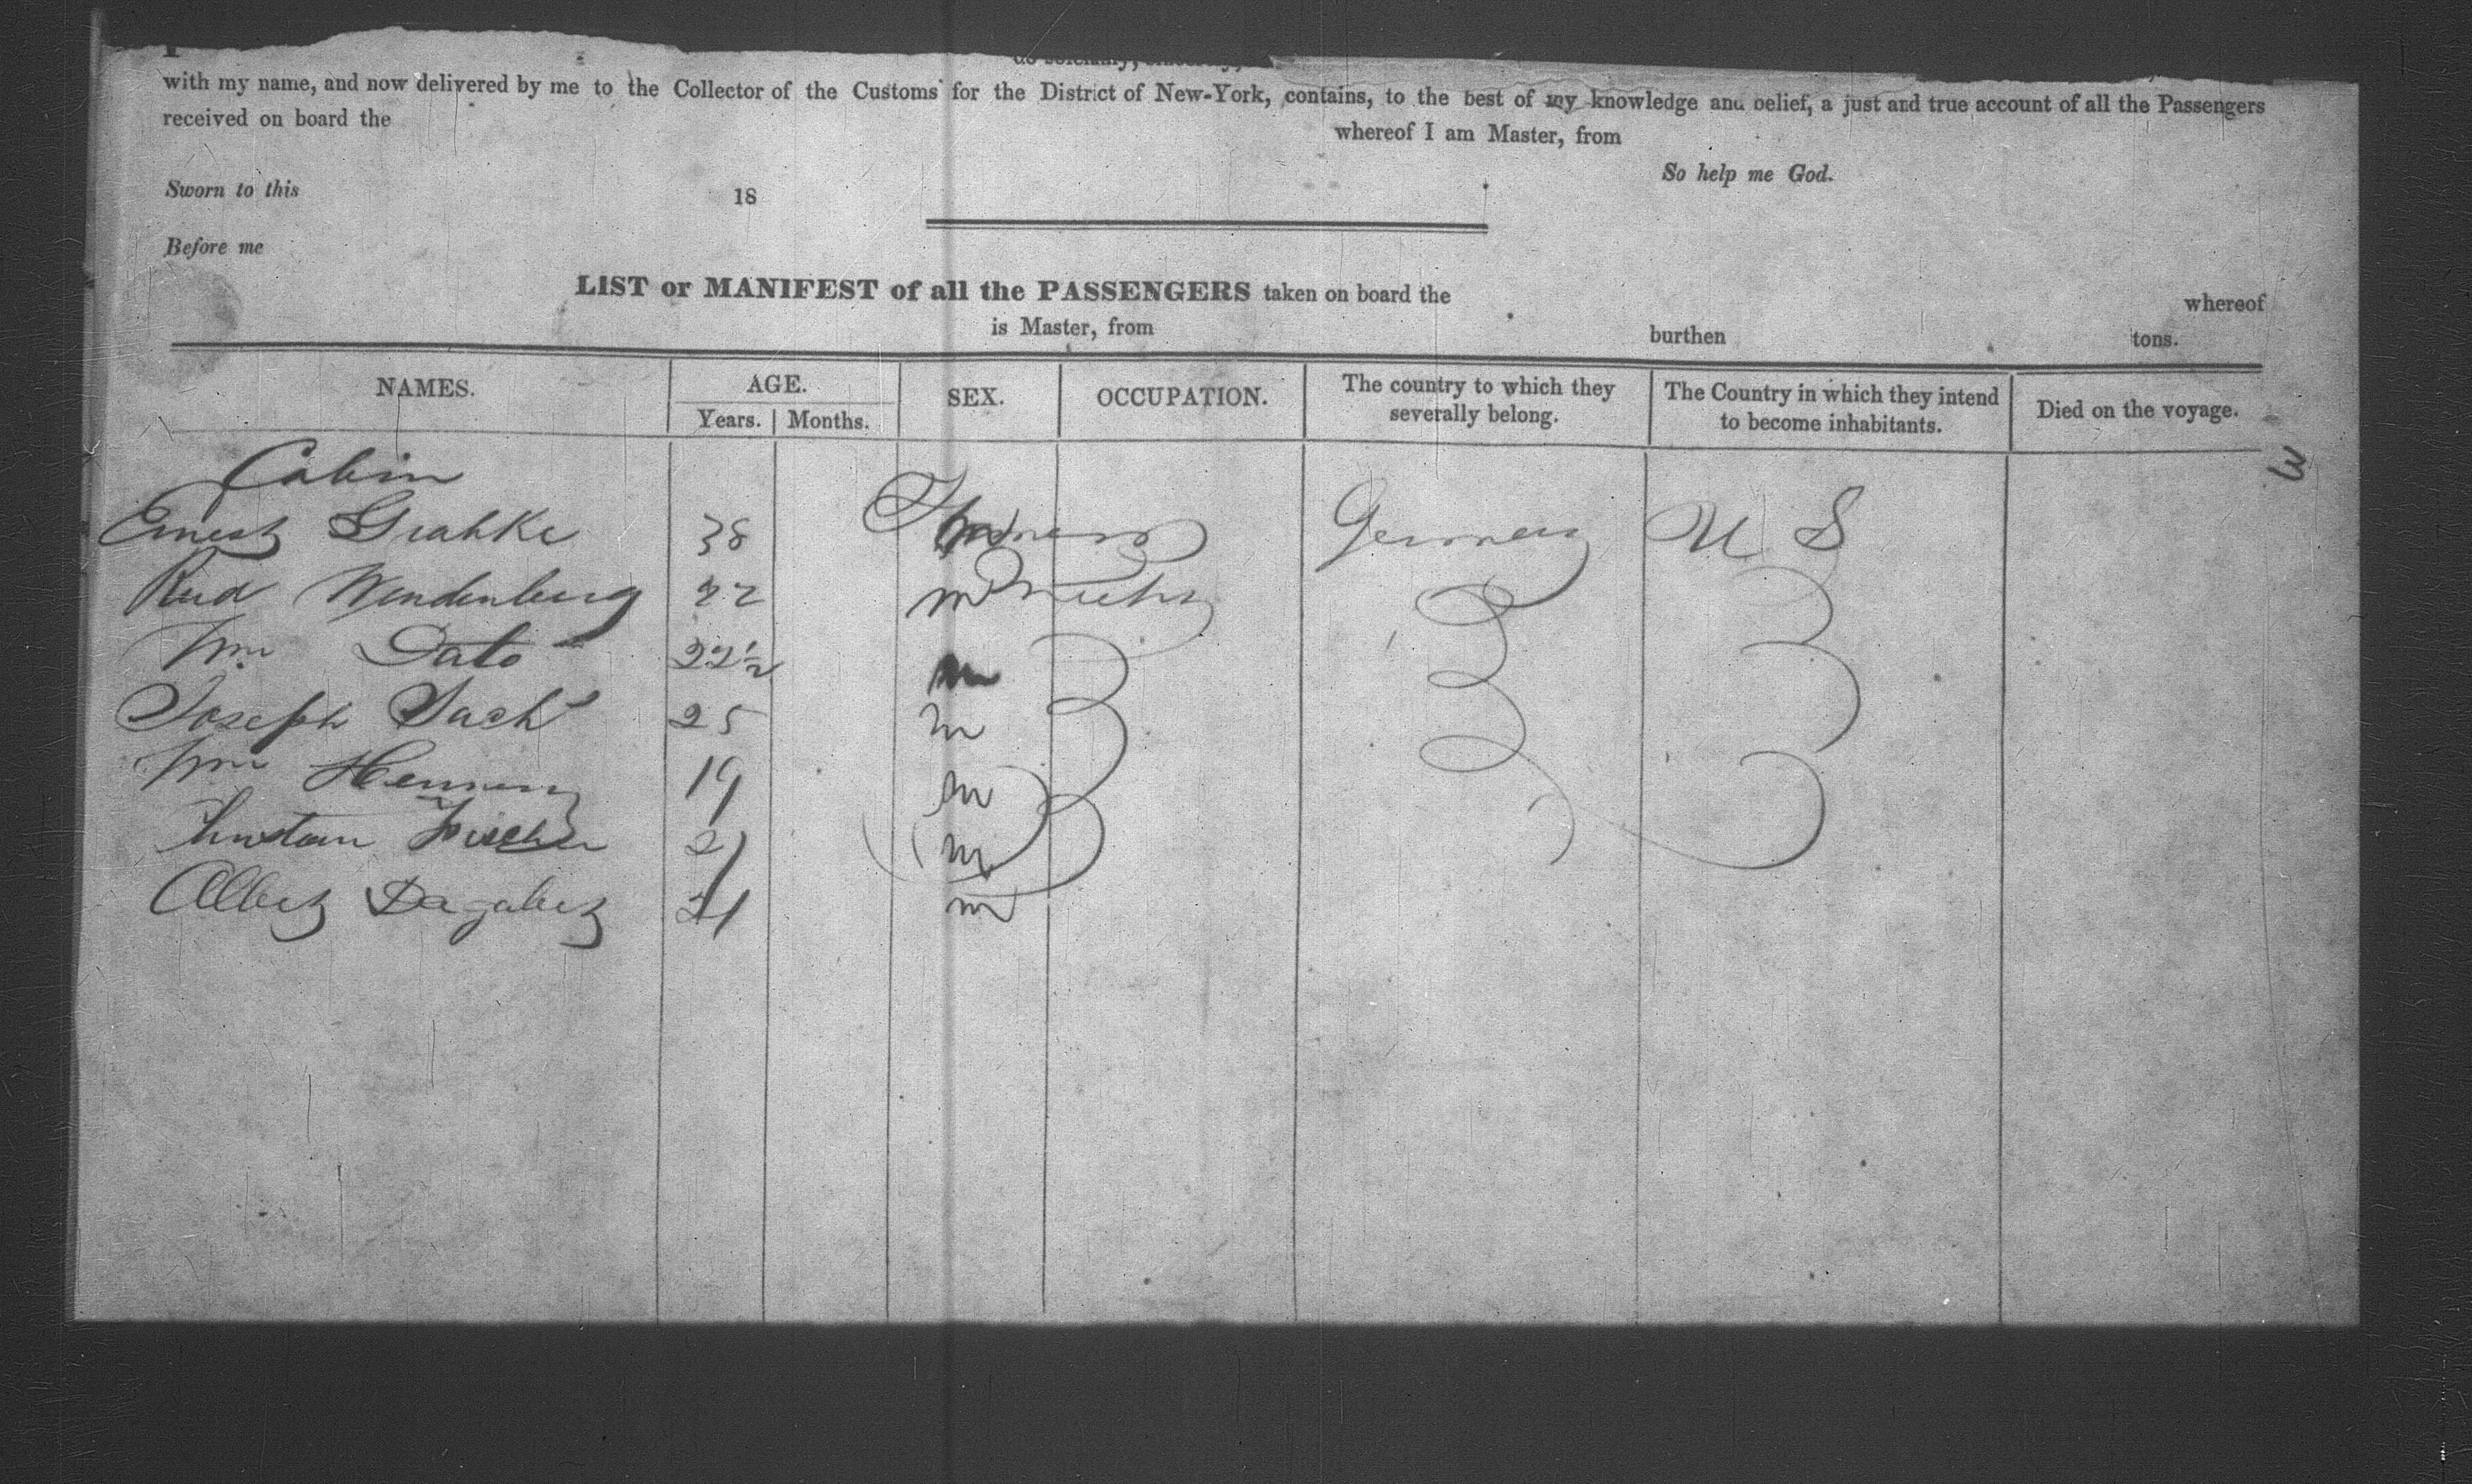 with my name, and now delivered by me to the Collector of the Customs for the District of New-York, contains, to the best of my knowledge and belief, a just and true account of all the Passengers
received on board the whereof I am Master, from
So help me God.
Sworn to this 18
Before me
LIST or MANIFEST of all the PASSENGERS taken on board the whereof
is Master, from burthen tons.
NAMES. AGE. SEX. OCCUPATION. The country to which they severally belong. The Country in which they intend to become inhabitants. Died on the voyage.
Years. Months.
Cabin
Ernest Grahke 38 Germany U S
Rud Wendenburg 22 m
Wm Dato 22½ m
Joseph Sach 25 m
Wm Henning 19 m
Fischer 21 m
Albert Dagabert 21 m
3